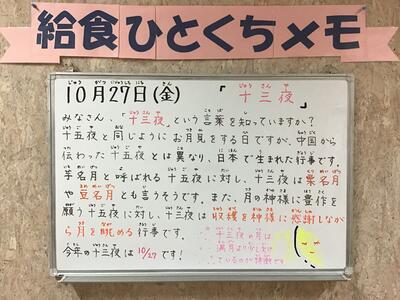 給食ひとくちメモ
10月27日(金) 「十三夜」
みなさん、「十三夜」という言葉を知っていますか?
十五夜と同じようにお月見をする日ですが、中国から
伝わった十五夜とは異なり、日本で生まれた行事です。
芋名月と呼ばれる十五夜に対し、十三夜は栗名月
や豆名月とも言うそうです。また、月の神様に豊作を
願う十五夜に対し、十三夜は収穫を神様に感謝しなが
ら月を眺める行事です。
今年の十三夜は10/27です!
十三夜の月は
満月より少し欠け
ているのが特徴です